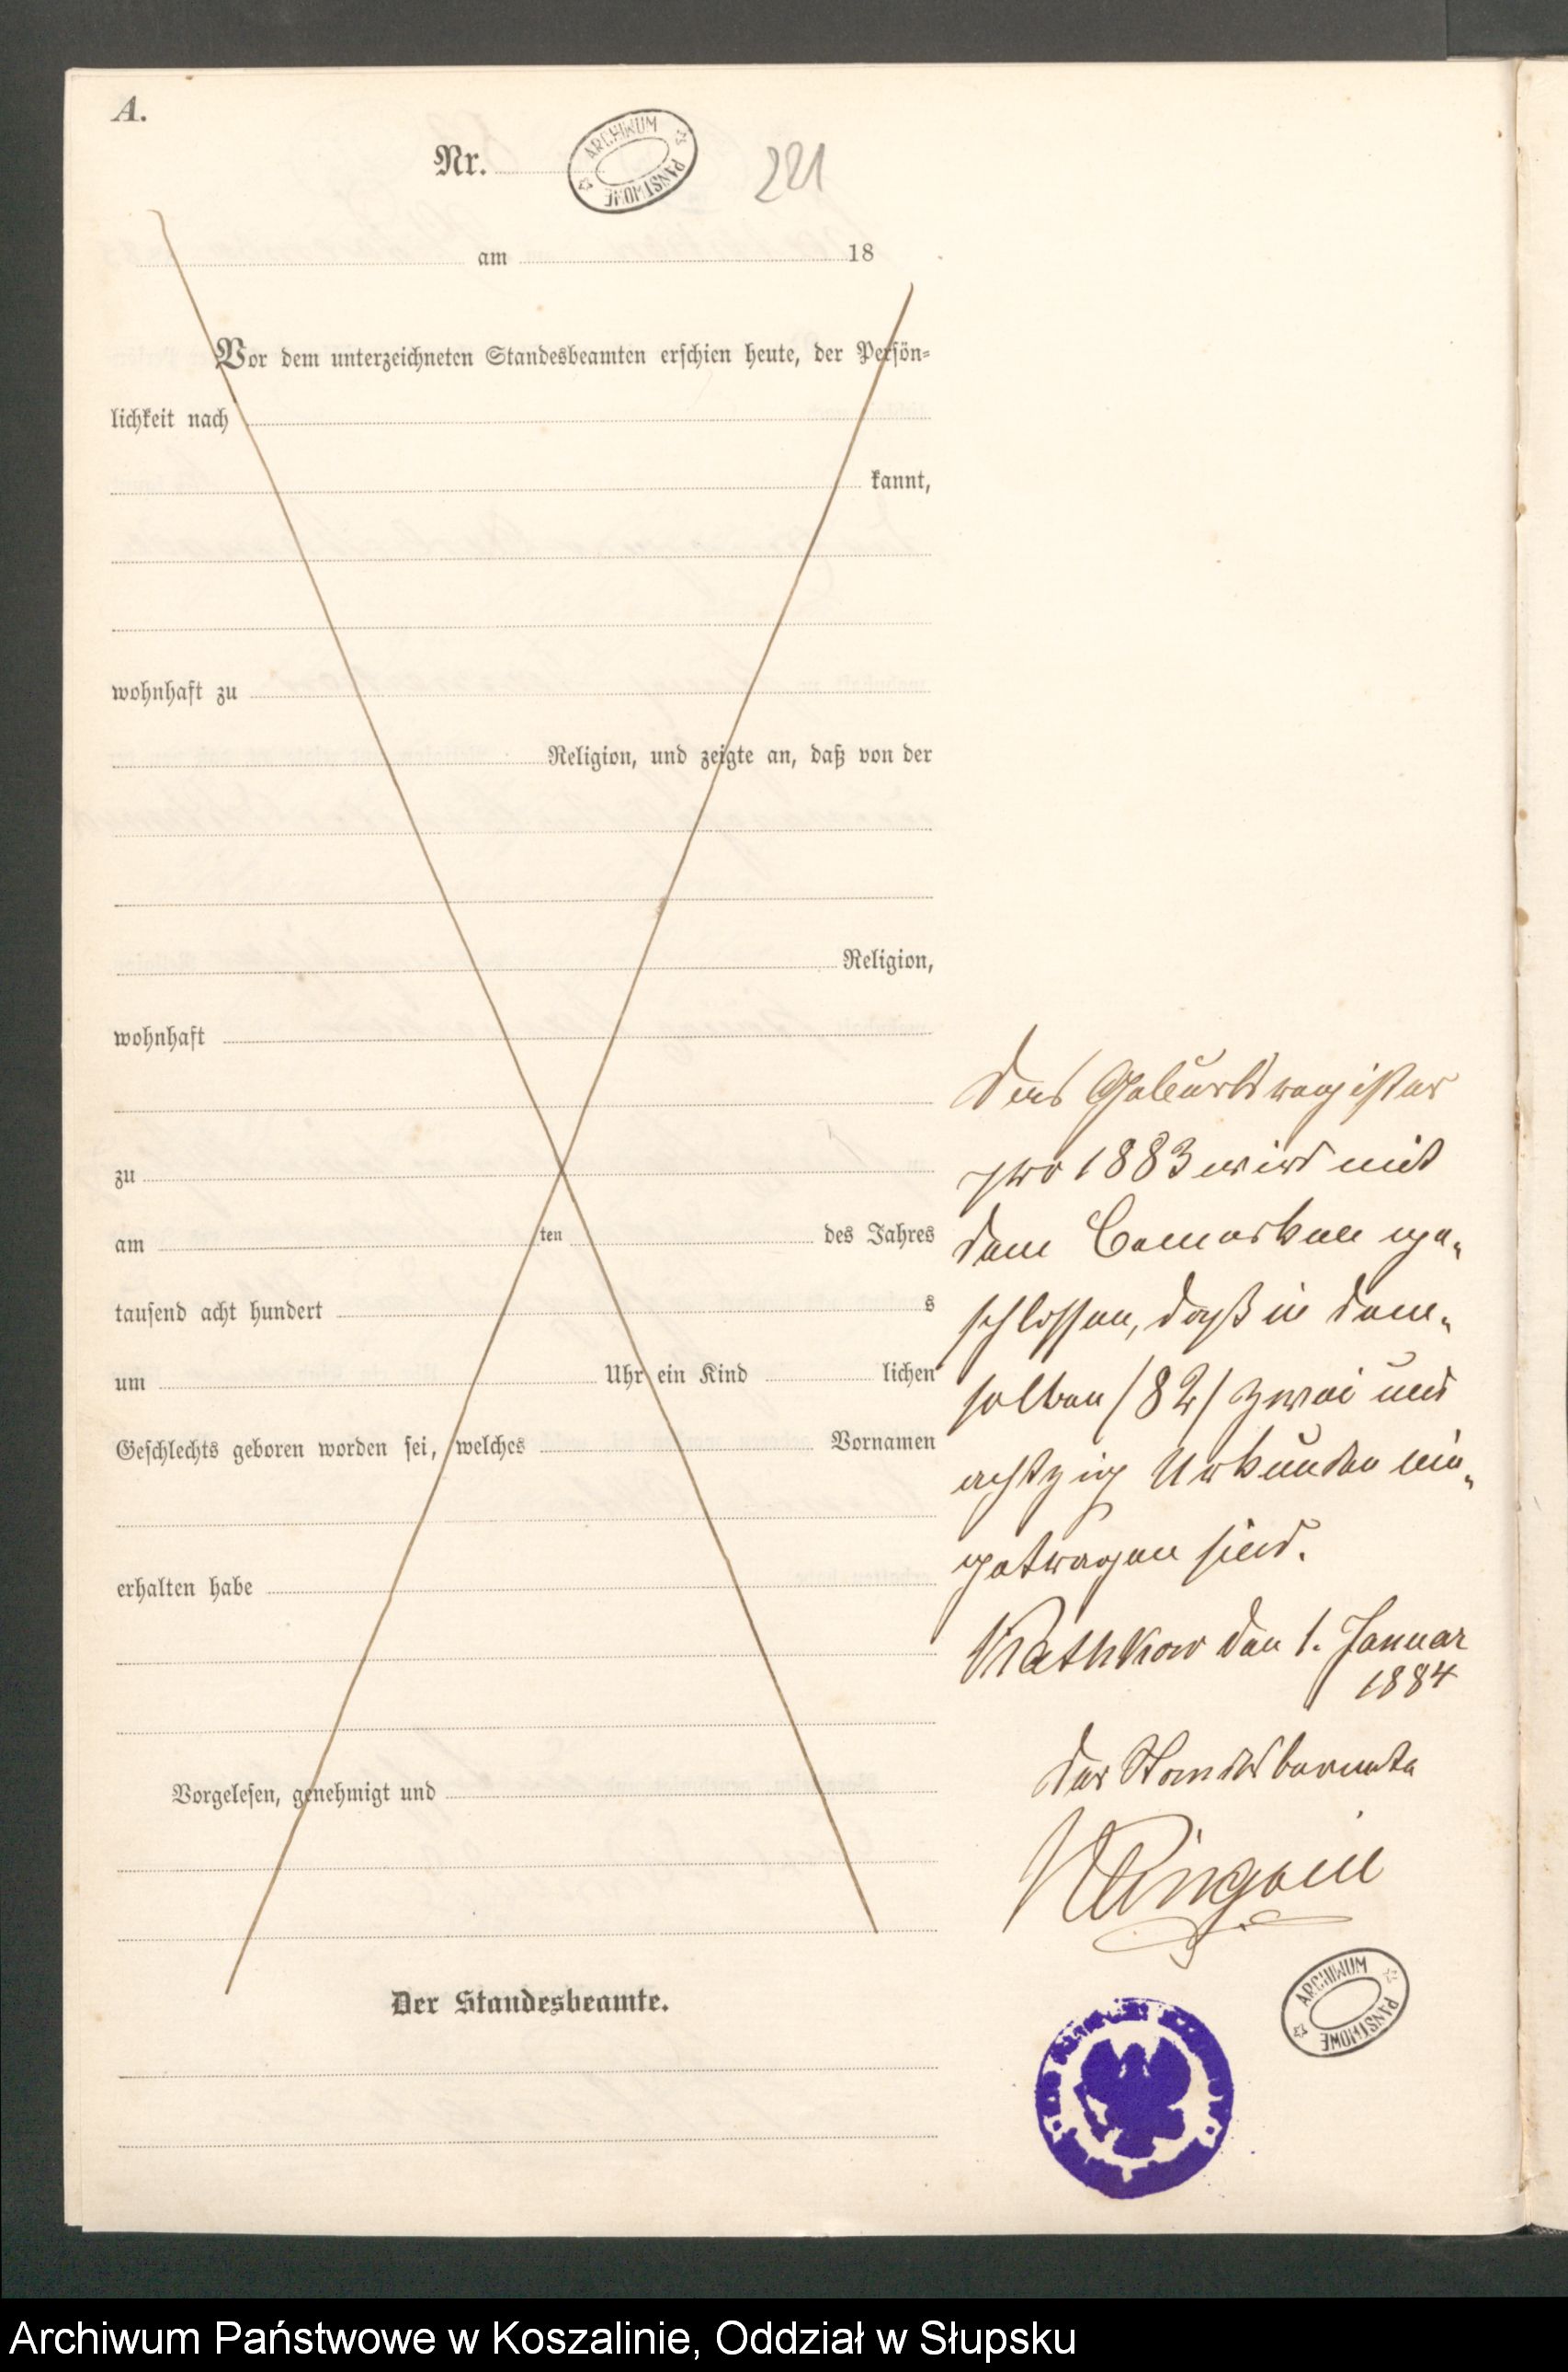 A.
Nr.
ARCHIWUM PAŃSTWOWE
221
am 18
Vor dem unterzeichneten Standesbeamten erschien heute, der Persön=
lichkeit nach
kannt,
wohnhaft zu
Religion, und zeigte an, daß von der
Religion,
wohnhaft
zu
am ten des Jahres
tausend acht hundert s
um Uhr ein Kind lichen
Geschlechts geboren worden sei, welches Vornamen
erhalten habe
Vorgelesen, genehmigt und
Der Standesbeamte.
Das Geburtsregister
pro 1883 wird mit
dem Bemerken ge-
schlossen, daß in dem-
selben /82/ zwei und
achtzig Urkunden ein-
getragen sind.
den 1. Januar
1884
Der Standesbeamte
ARCHIWUM PAŃSTWOWE
Archiwum Państwowe w Koszalinie, Oddział w Słupsku